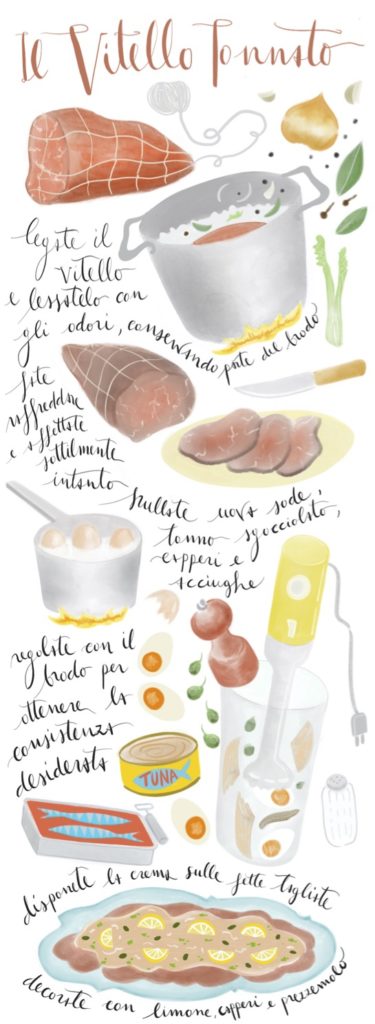 Il Vitello Tonnato
legate il
vitello
e lessatelo con
gli odori, conservando parte del brodo
fate
raffreddare
e affettate
sottilmente
intanto
frullate uova sode,
tonno sgocciolato,
capperi e
acciughe
regolate con il
brodo per
ottenere la
consistenza
desiderata
TUNA
disponete la crema sulle fette tagliate
decorate con limone, capperi e prezzemolo